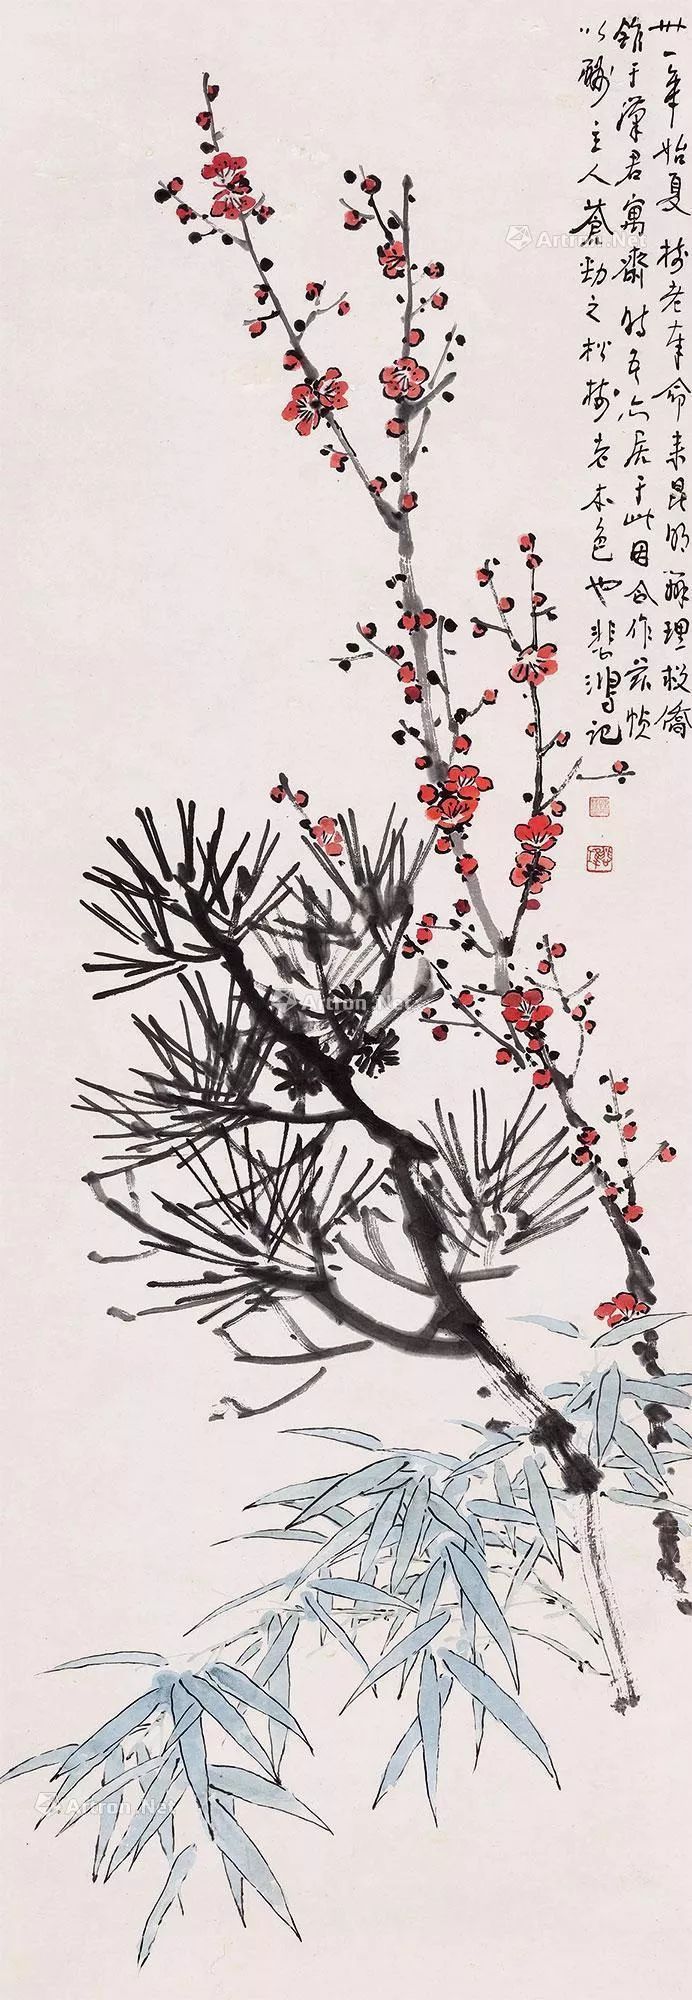 卅一年始夏 树老奉命来昆明办理救侨
馆于汉君寓斋 时吾亦居于此 因合作兹帧
以酬主人 苍劲之松 树老本色也 悲鸿记
Artron.Net
Artron.Net
Artron.Net